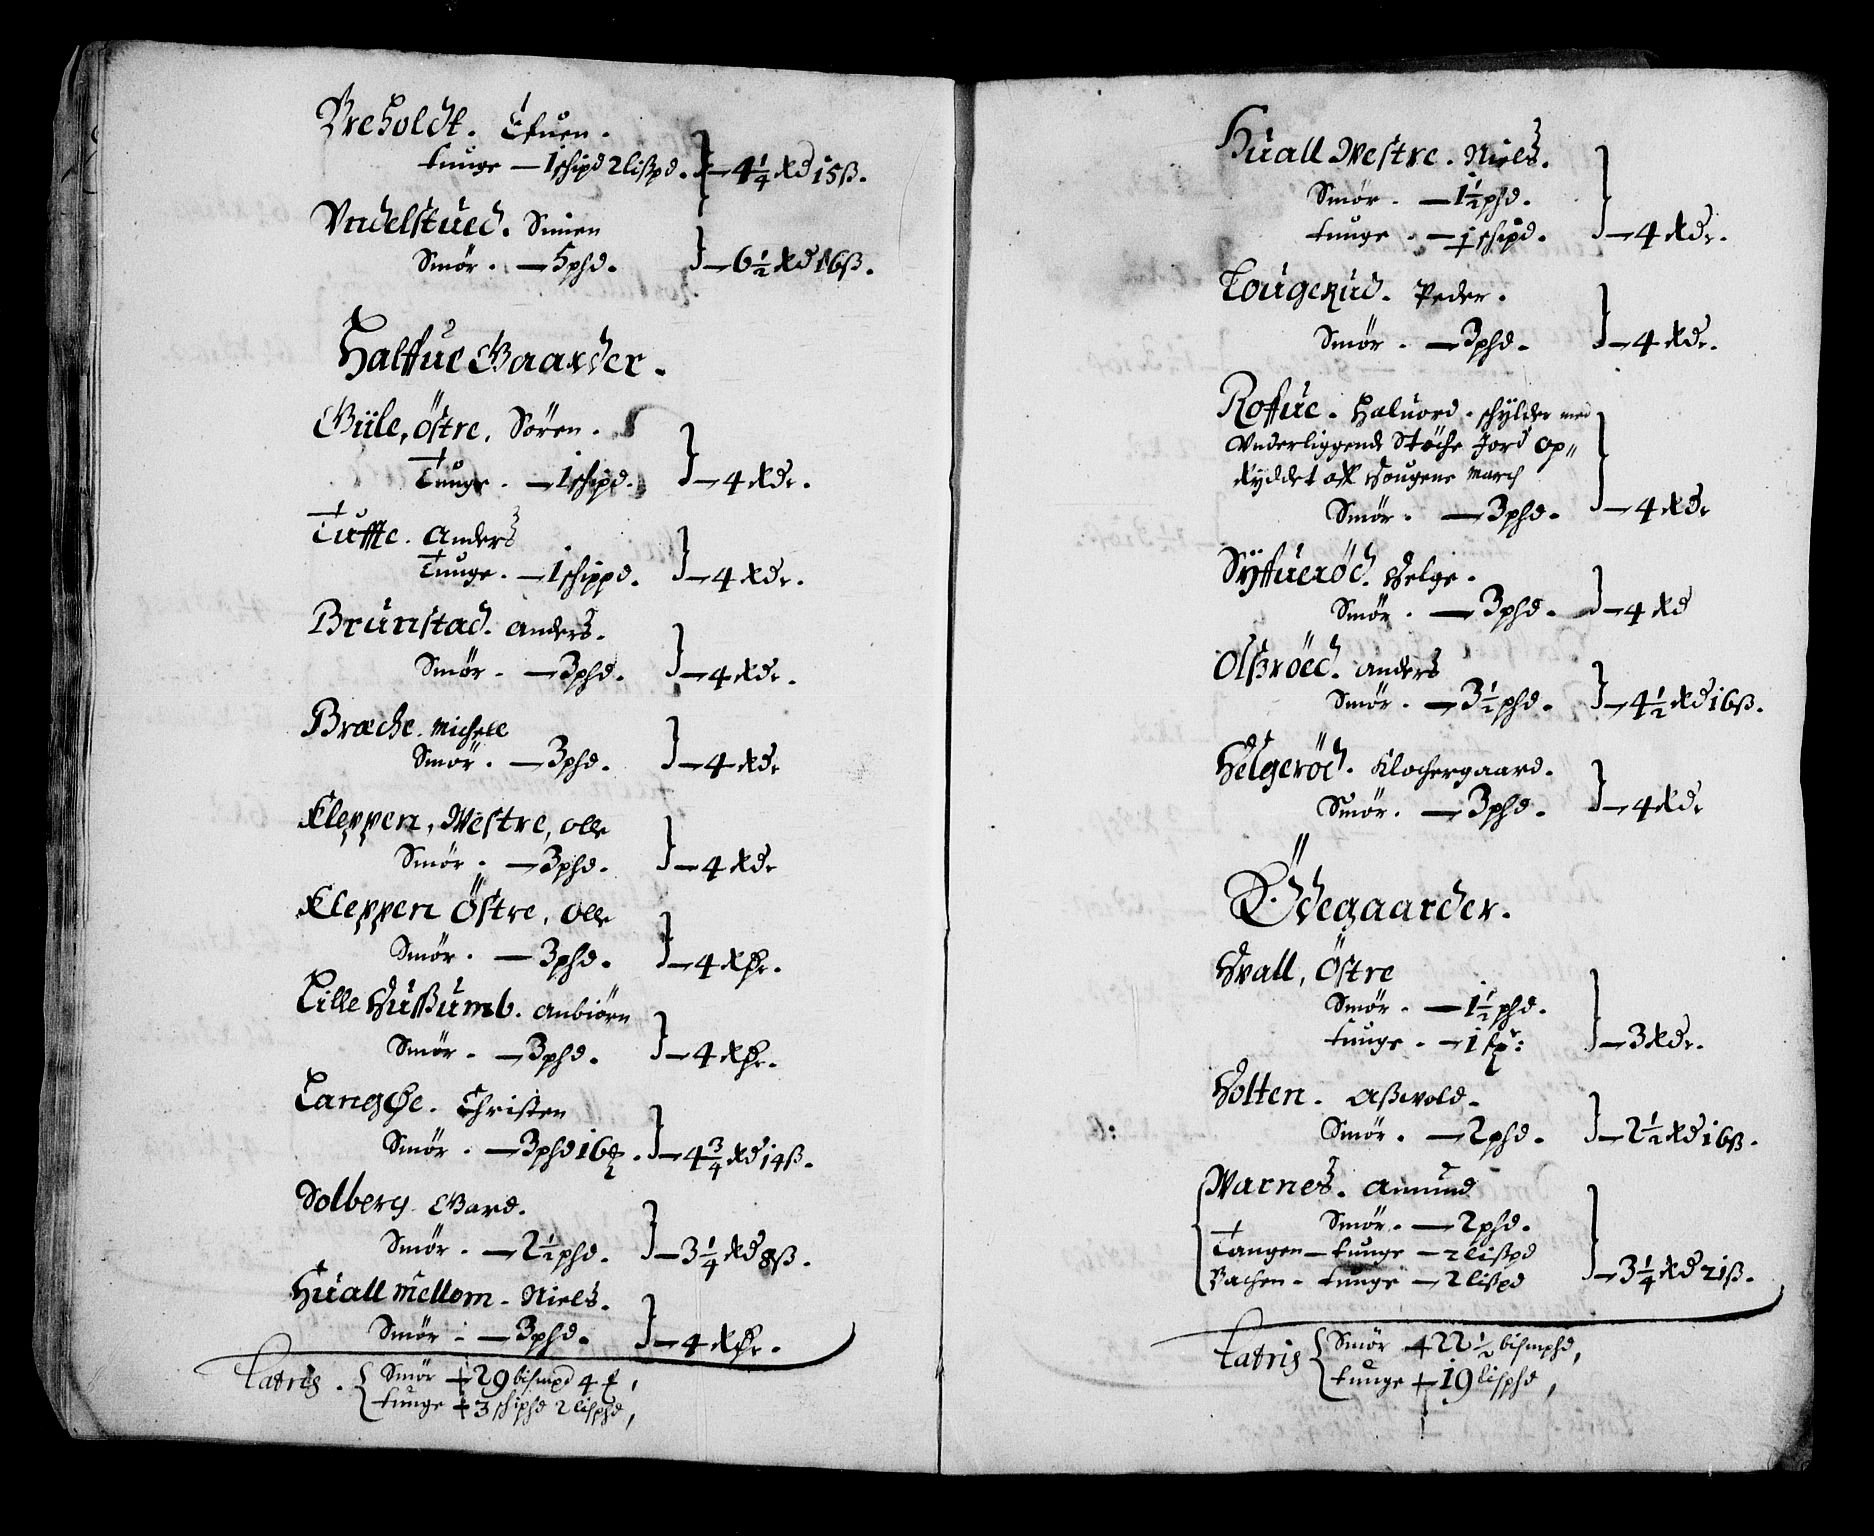 Vreholdt. Efuen.
tunge — 1 schipd 2 lißpd. — 4¼ Rd 15 ß.
Vndelstued. Simen
Smör. — 5 phd. — 6½ Rd 16 ß.
Halffue Gaarder.
Giile, Östre, Sören.
Tunge. — 1 schipd. — 4 Rdr.
Tuffte. Anders
Tunge. — 1 schippd. — 4 Rdr.
Brunstad. Anders.
Smör. — 3 phd. — 4 Rdr.
Bræche. Michell
Smör. — 3 phd. — 4 Rdr
Kleppen, Westre, Olle
Smör. — 3 phd. — 4 Rdr
Kleppen Östre, Olle
Smör. — 3 phd. — 4 Rdr.
Lille Hußumb. Anbiörn
Smör. — 3 phd. — 4 Rdr.
Langøe. Christen
Smör. — 3 phd 16 — 4¾ Rd 14 ß.
Solberg. Gard.
Smör. — 2½ phd. — 3¼ Rd 8 ß.
Huall mellom. Niels.
Smör — 3 phd. — 4 Rdr.
Latris. Smör 29 bismpd 4
tunge 3 schiphd 2 lisphd,
Huall Westre. Niels.
Smör. — 1½ phd.
tunge. — 1 schipd. — 4 Rdr.
Lougerud. Peder.
Smör. — 3 phd. — 4 Rdr.
Roffue. Haluord. schylder med
Vnderliggende Støche Jord op„
Ryddet aff Sougene March
Smör. — 3 phd. — 4 Rdr
Syffueröd. Helge.
Smör. — 3 phd. — 4 Rd
Olßröed. Anders
Smör. — 3½ phd. — 4½ Rd 16 ß.
Helgeröd. Klochergaard.
Smör. — 3 phd. — 4 Rdr
Ödegaarder.
Hvall, Östre
Smör. — 1½ phd.
tunge. — 1 — 3 Rdr.
Holten. Aßwold.
Smör. — 2 phd. — 2½ Rd 16 ß.
Warnes. Amund
Smör. — 2 phd.
Tangen — tunge — 2 lißpd
Bachen. tunge — 2 lißpd — 3¼ Rd 21 ß.
Latris Smör 22½ bismphd,
tunge 19 lisphd,